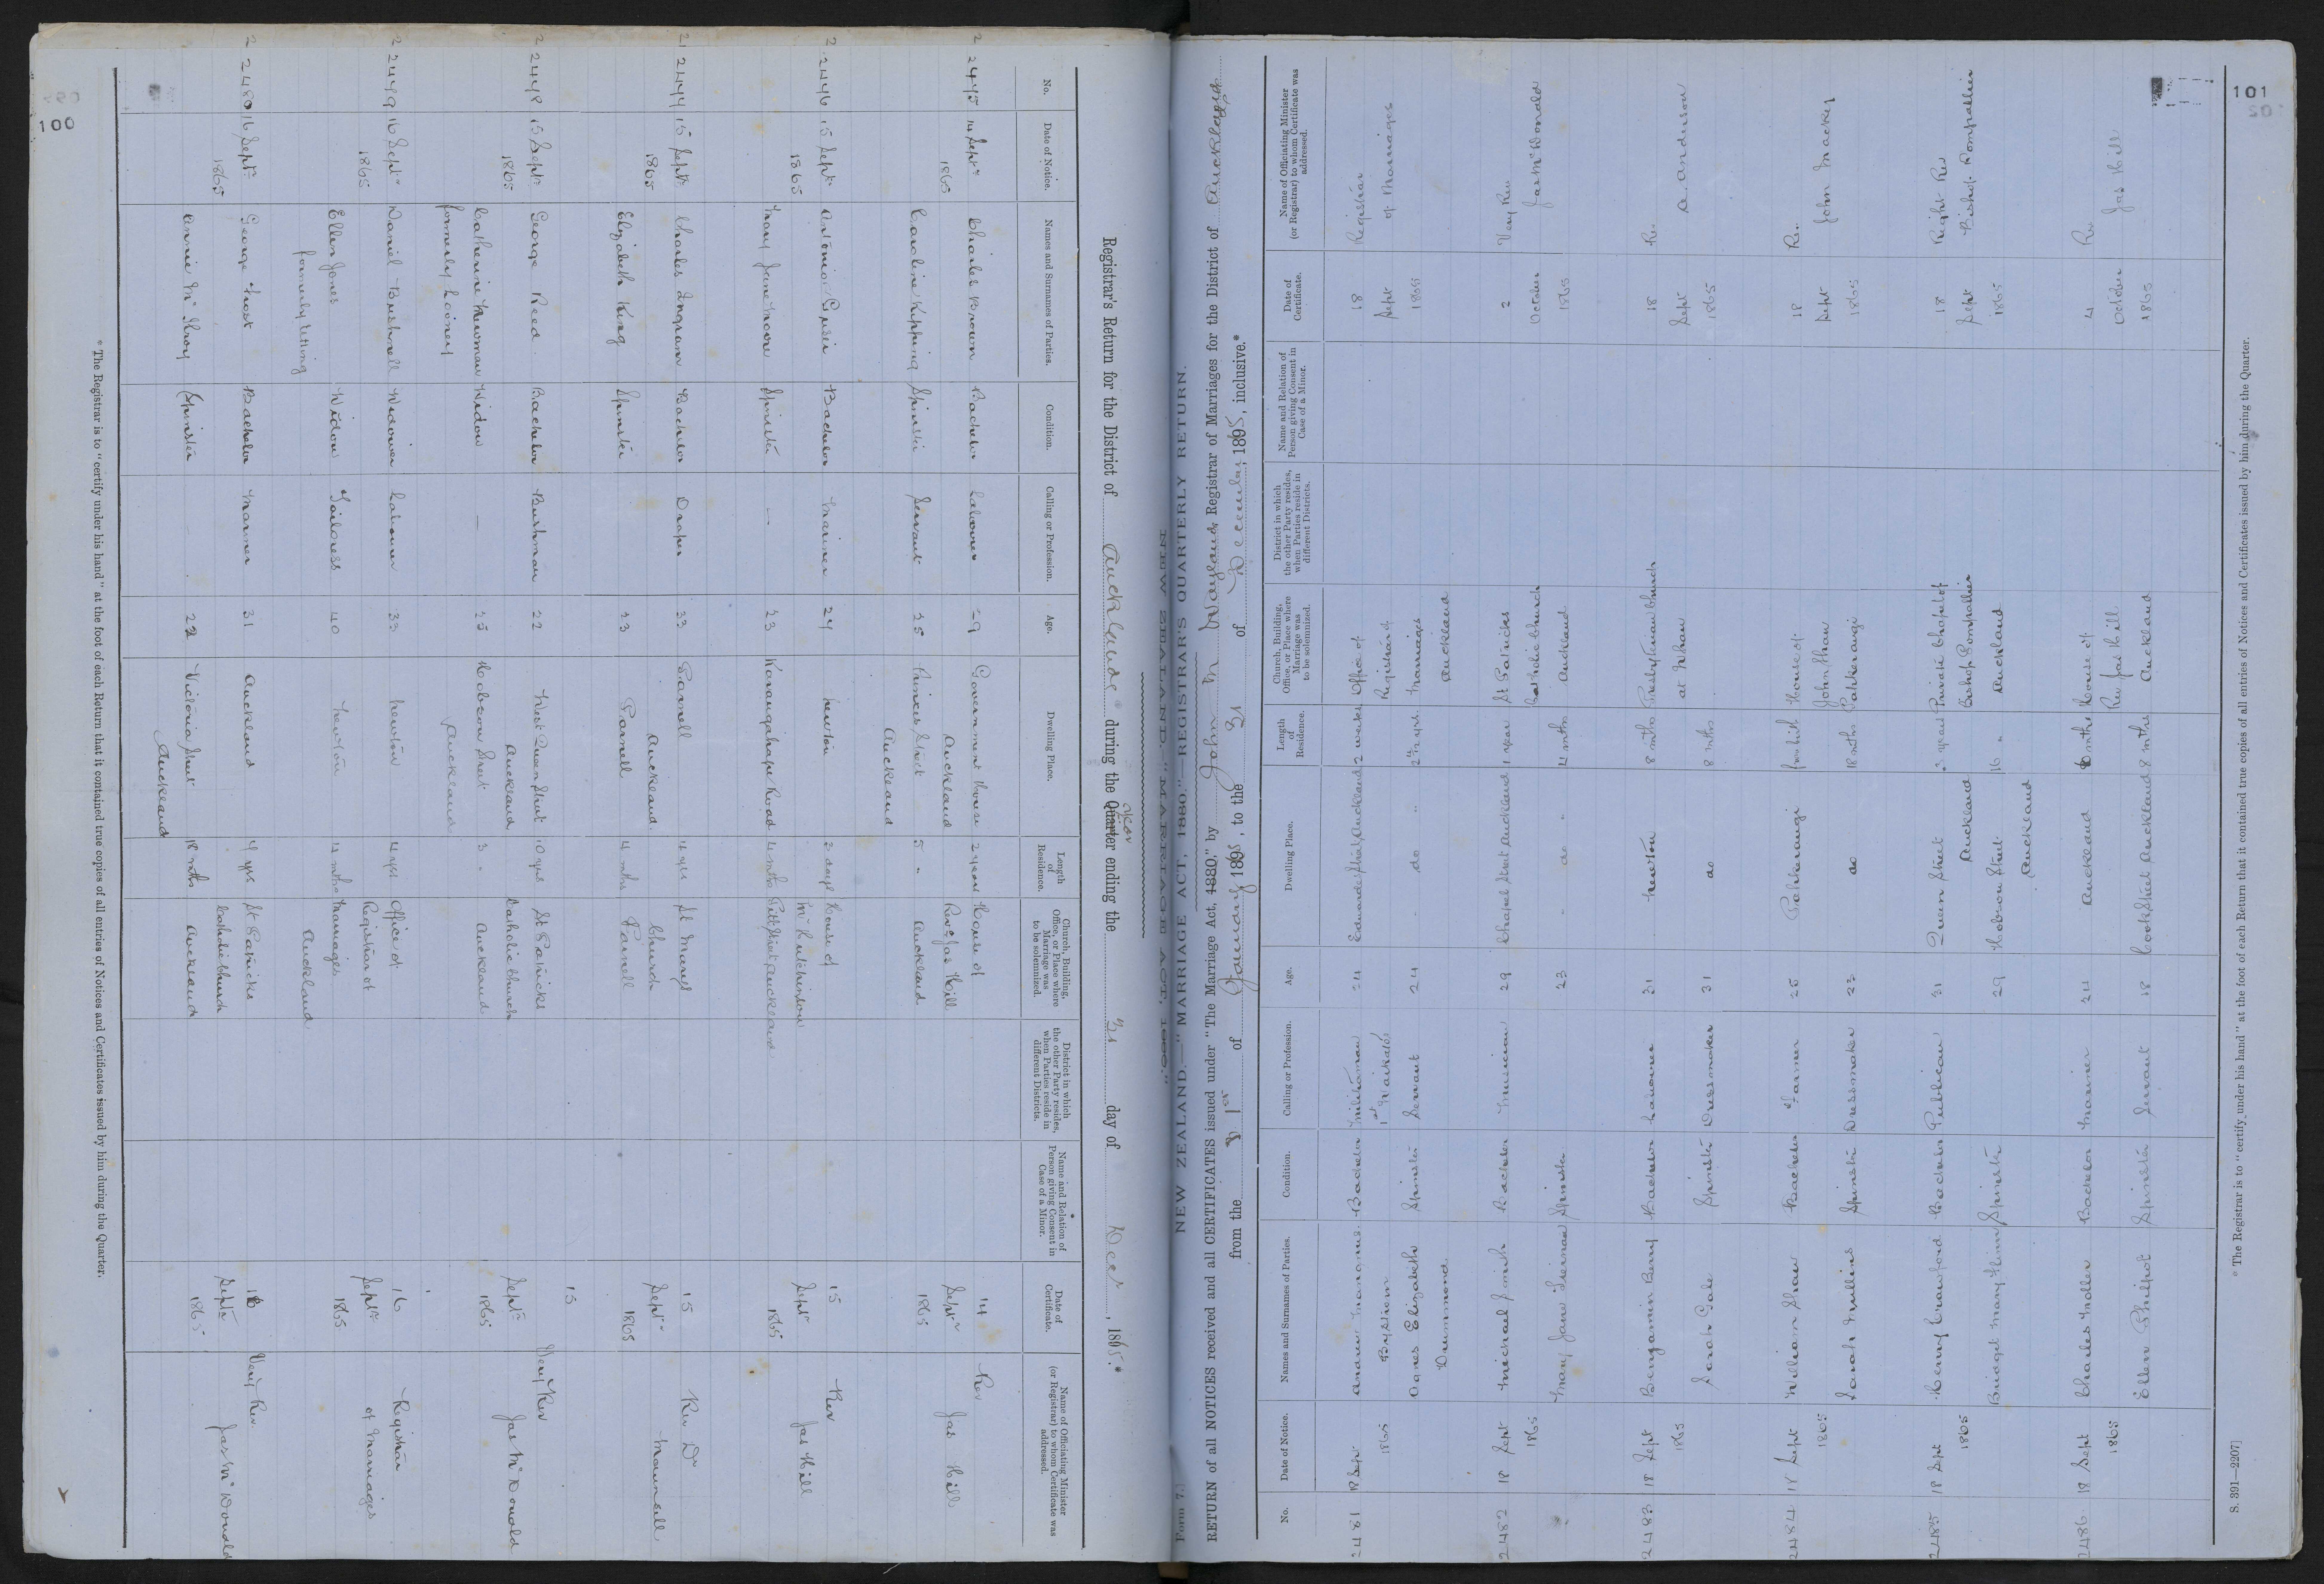 100
Registrar's Return for the District of Auckland during the Quarter year ending the 31 day of Decr, 1865.*
No.
Date of Notice.
Names and Surnames of Parties.
Condition.
Calling or Profession.
Age.
Dwelling Place.
Length of Residence.
Church, Building, Office, or Place where Marriage was to be solemnized.
District in which the other Party resides, when Parties reside in different Districts.
Name and Relation of Person giving Consent in Case of a Minor.
Date of Certificate.
Name of Officiating Minister (or Registrar) to whom Certificate was addressed.
14 Septr 1865 Charles Brown Bachelor Labourer 29 Government House Auckland 2 years House of Revd Jas Hill Auckland 14 Septr 1865 Rev Jas Hill
Caroline Kipping Spinster Servant Princes Street Auckland 5 "
15 Septr 1865 Antonio Bachelor Mariner Newton 2 days House of Mr Hutchinson Pitt Street Auckland 15 Septr 1865 Rev Jas Hill
Mary Jane Moore Spinster — 23 Karangahape Road 4 mths
15 Septr 1865 Charles Ingram Bachelor Draper 33 Parnell Auckland 4 yrs St Marys Church Parnell 15 Septr 1865 Rev Dr Maunsell
Elizabeth King Spinster Parnell 4 mths
15 Septr 1865 George Reed Bachelor Bushman 22 West Queen Street Auckland 10 yrs St Patricks Catholic Church Auckland 15 Septr 1865 Very Rev Jas McDonald
Catherine Newman formerly Widow — Hobson Street Auckland 3 "
16 Septr 1865 Daniel Bushnell Widower Labourer Newton 4 yrs Office of Registrar of Marriages Auckland 16 Septr 1865 Registrar of Marriages
Ellen Jones formerly Widow Tailoress 40 Newton 4 mths
2480 16 Septr 1865 George Frost Bachelor Mariner 31 Auckland 9 yrs St Patricks Catholic Church Auckland Septr 1865 Very Rev. Jas McDonald
Annie McIlroy Spinster — 22 Victoria Street Auckland 18 mths
* The Registrar is to "certify under his hand" at the foot of each Return that it contained true copies of all entries of Notices and Certificates issued by him during the Quarter.
101
Form 7.]
NEW ZEALAND.—"MARRIAGE ACT, 1880."—REGISTRAR'S QUARTERLY RETURN.
RETURN of all NOTICES received and all CERTIFICATES issued under "The Marriage Act, 1880," by John M Wayland, Registrar of Marriages for the District of Auckland
from the 1st of January 1865, to the 31 of December, 1865, inclusive.*
No.
Date of Notice.
Names and Surnames of Parties.
Condition.
Calling or Profession.
Age.
Dwelling Place.
Length of Residence.
Church, Building, Office, or Place where Marriage was to be solemnized.
District in which the other Party resides, when Parties reside in different Districts.
Name and Relation of Person giving Consent in Case of a Minor.
Date of Certificate.
Name of Officiating Minister (or Registrar) to whom Certificate was addressed.
2481 18 Sept 1865 Andrew Bachelor Militiaman 1st Waikato 24 Edwards Street Auckland 2 weeks Office of Registrar of Marriages Auckland 18 Sept 1865 Registrar of Marriages
Agnes Elizabeth Drummond Spinster Servant 24 " do "
2482 18 Sept 1865 Michael Smith Bachelor Musician 29 Chapel Street Auckland 1 year St Patricks Catholic Church Auckland 2 October 1865 Very Rev Jas McDonald
Mary Jane Spinster 23 " do " 4 mths
2483 18 Sept 1865 Benjamin Berry Bachelor Labourer 31 Newton 8 mths Presbyterian Church at Whau 18 Sept 1865 Rev. A. Anderson
Sarah Gale Spinster Dressmaker 31 do 8 mths
2484 18 Sept 1865 William Shaw Bachelor Farmer 25 Pakherangi from birth House of John Shaw Pakherangi 18 Sept 1865 Rev. John Macky
Sarah Mullins Spinster Dressmaker 23 do 18 mths
2485 18 Sept 1865 Henry Crawford Bachelor Publican 31 Queen Street Auckland 3 years Private Chapel of Bishop Pompallier Auckland 18 Sept 1865 Right Rev Bishop Pompallier
Bridget Mary Flinn Spinster 29 Hobson Street Auckland 16 "
2486 18 Sept 1865 Charles Bachelor Mariner 24 Auckland 6 mths House of Rev Jas Hill Auckland 4 October 1865 Rev Jas Hill
Ellen Philpot Spinster Servant 18 Cook Street Auckland 8 mths
* The Registrar is to "certify under his hand" at the foot of each Return that it contained true copies of all entries of Notices and Certificates issued by him during the Quarter.
S. 391—2207]